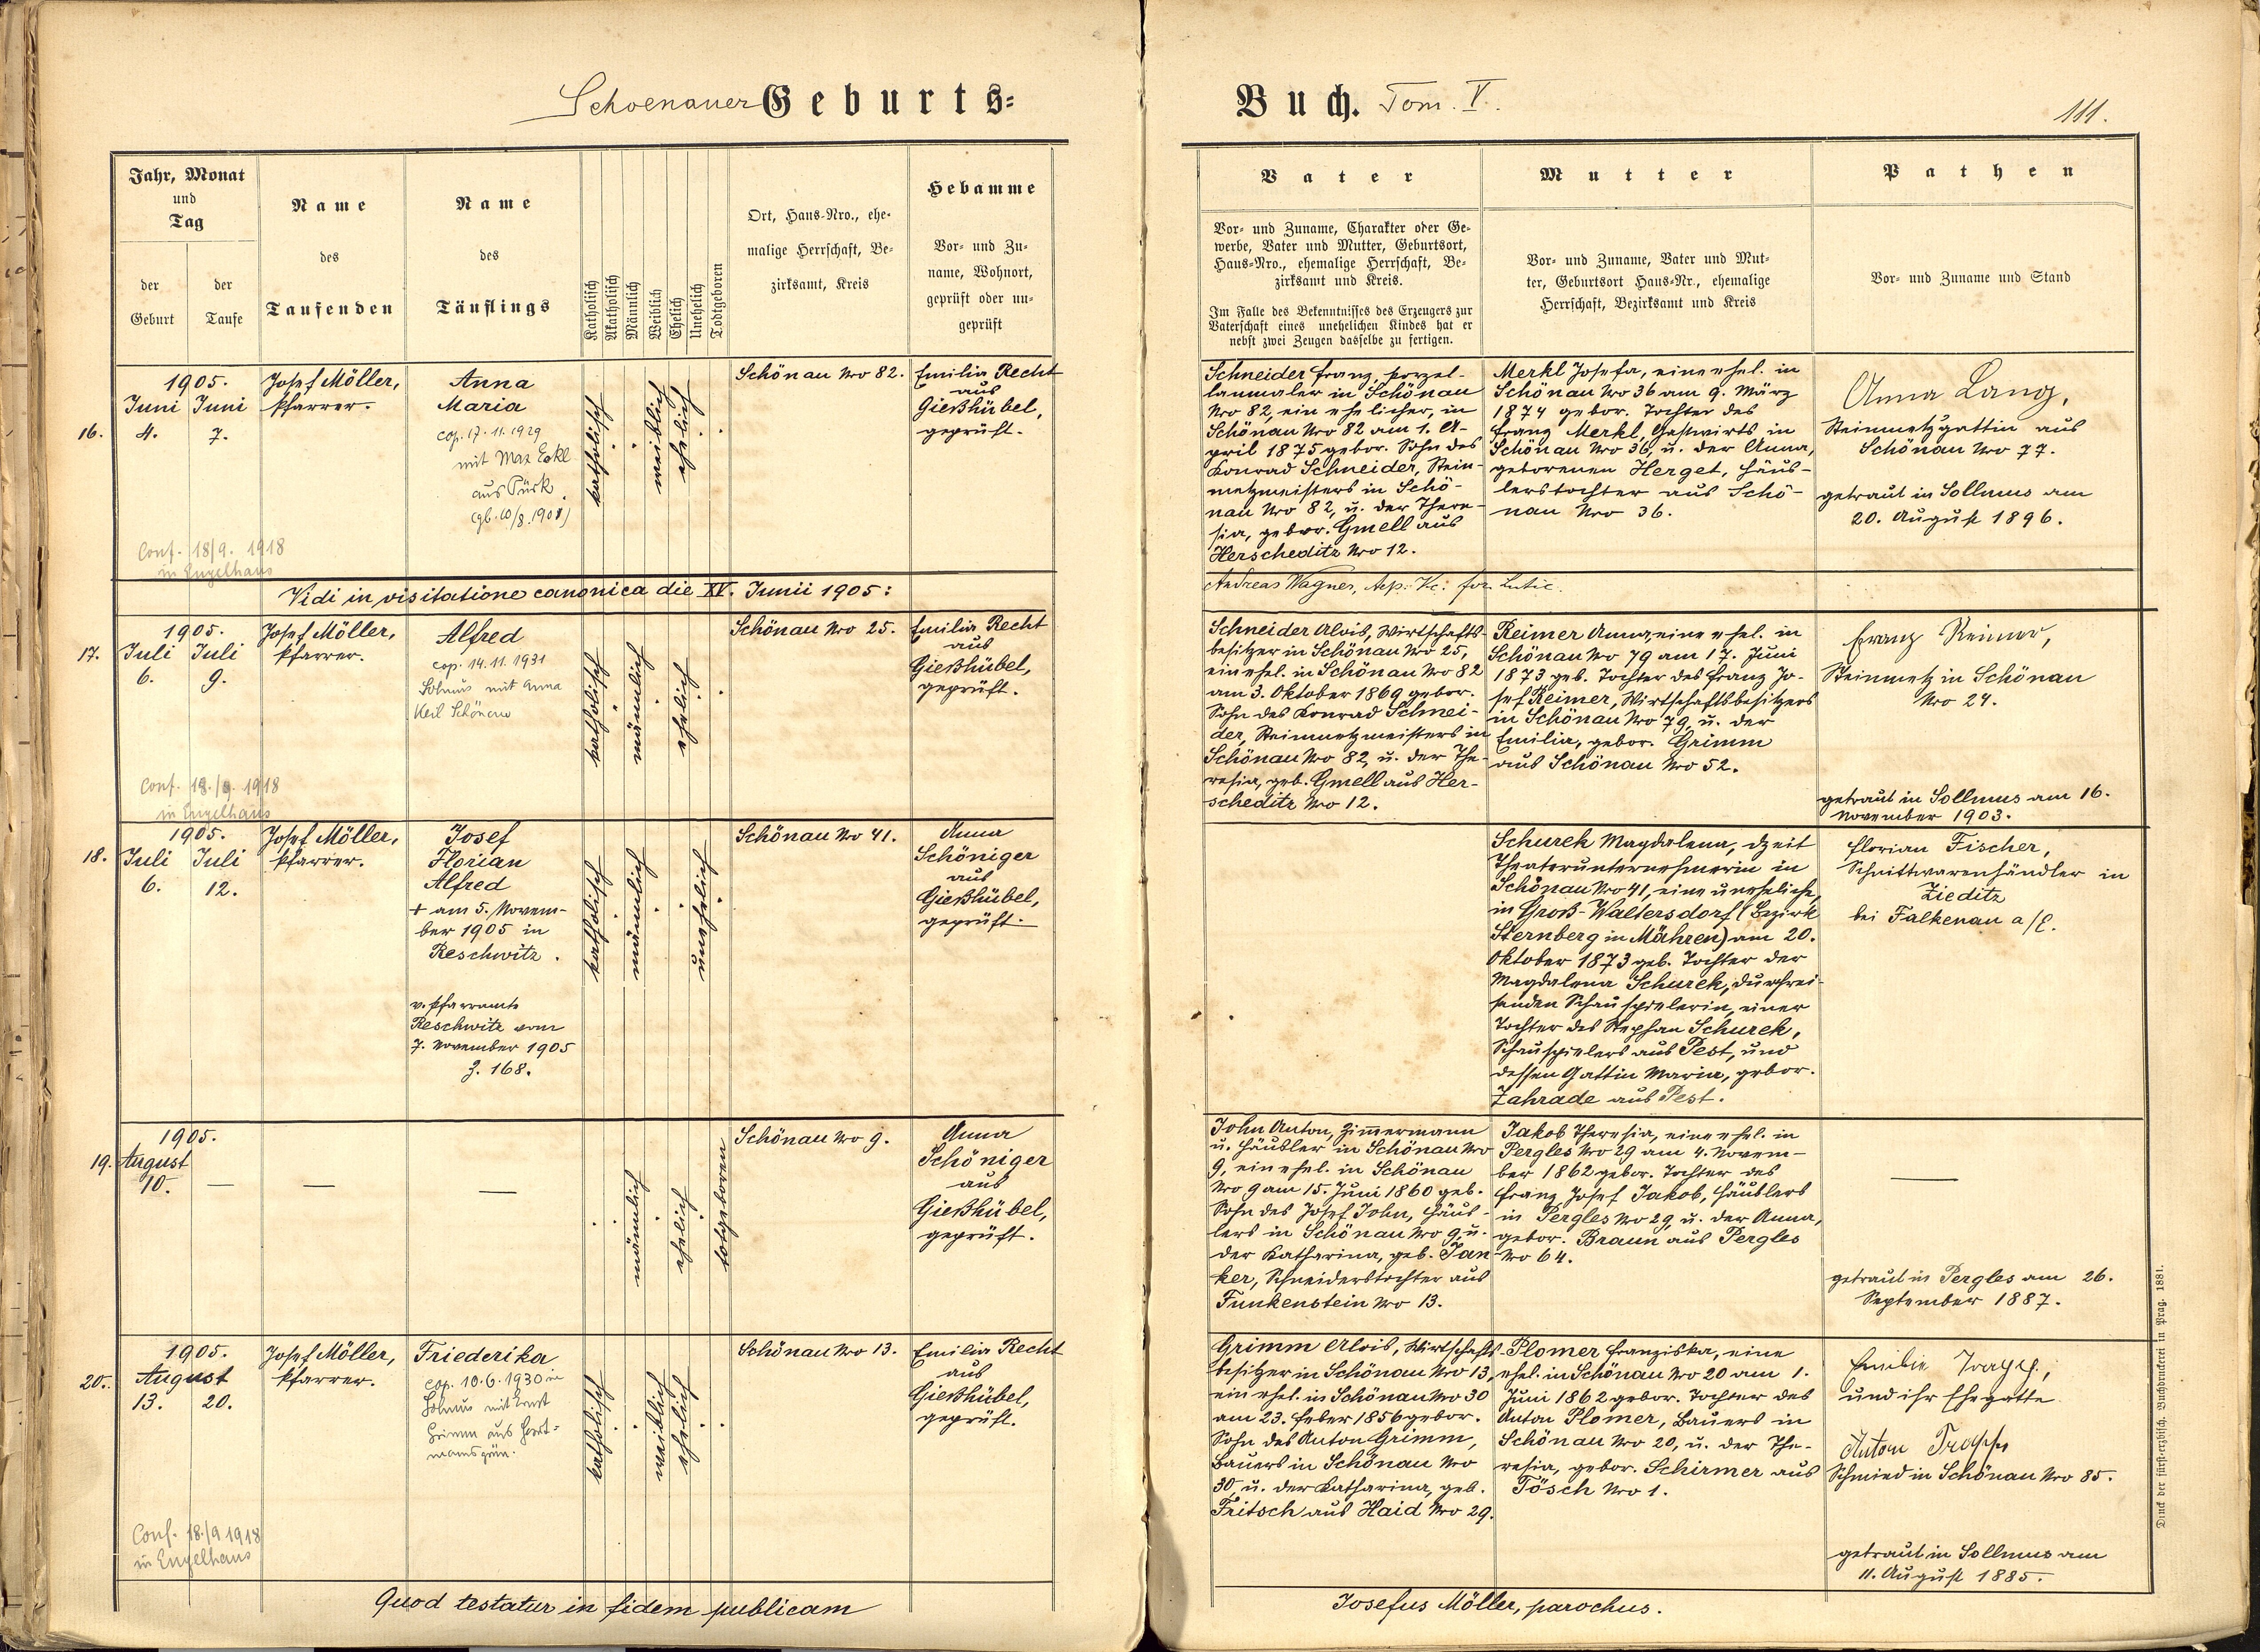 Schoenauer Geburts-
Buch. Tom. V.
111.
Jahr, Monat
und
Tag
der
Geburt
der
Taufe
Name
des
Taufenden
Name
des
Täuflings
Katholisch
Akatholisch
Männlich
Weiblich
Ehelich
Unehelich
Todtgeboren
Ort, Haus-Nro., ehe-
malige Herrschaft, Be-
zirksamt, Kreis
Hebamme
Vor- und Zu-
name, Wohnort,
geprüft oder un-
geprüft
Vater
Vor- und Zuname, Charakter oder Ge-
werbe, Vater und Mutter, Geburtsort,
Haus-Nro., ehemalige Herrschaft, Be-
zirksamt und Kreis.
Im Falle des Bekenntnisses des Erzeugers zur
Vaterschaft eines unehelichen Kindes hat er
nebst zwei Zeugen dasselbe zu fertigen.
Mutter
Vor- und Zuname, Vater und Mut-
ter, Geburtsort Haus-Nr., ehemalige
Herrschaft, Bezirksamt und Kreis
Pathen
Vor- und Zuname und Stand
16.
1905.
Juni Juni
4. 7.
Conf. 18/9. 1918
in Engelhaus
Josef Möller,
Pfarrer.
Anna
Maria
cop. 17. 11. 1929
mit Max Eckl
aus Pürk
katholisch
weiblich
ehelich
Schönau Nro 82.
Emilia Recht
aus
Gießhübel,
geprüft.
Schneider Franz, Porzel-
lanmaler in Schönau
Nro 82, ein ehelicher, in
Schönau Nro 82 am 1. A-
pril 1875 gebor. Sohn des
Konrad Schneider, Stein-
metzmeisters in Schö-
nau Nro 82, u. der There-
sia, gebor. Gmell aus
Herscheditz Nro 12.
Merkl Josefa, eine ehel. in
Schönau Nro 36 am 9. März
1874 gebor. Tochter des
Franz Merkl, Gastwirts in
Schönau Nro 36, u. der Anna,
geborenen Herget, Häus-
lerstochter aus Schö-
nau Nro 36.
Anna Lang,
Steinmetzgattin aus
Schönau Nro 77.
getraut in Sollmus am
20. August 1896.
Vidi in visitatione canonica die XV. Junii 1905:
Andreas Wagner,
17.
1905.
Juli Juli
6. 9.
Conf. 18./9. 1918
in Engelhaus
Josef Möller,
Pfarrer.
Alfred
cop. 14. 11. 1931
Solmus mit Anna
Keil Schönau
katholisch
männlich
ehelich
Schönau Nro 25.
Emilia Recht
aus
Gießhübel,
geprüft.
Schneider Alois, Wirtschafts-
besitzer in Schönau Nro 25,
ein ehel. in Schönau Nro 82
am 3. Oktober 1869 gebor.
Sohn des Konrad Schnei-
der, Steinmetzmeisters in
Schönau Nro 82, u. der The-
resia, geb. Gmell aus Her-
scheditz Nro 12.
Reimer Anna, eine ehel. in
Schönau Nro 79 am 17. Juni
1873 geb. Tochter des Franz Jo-
sef Reimer, Wirtschaftsbesitzers
in Schönau Nro 79, u. der
Emilia, gebor. Grimm
aus Schönau Nro 52.
Franz Reimer,
Steinmetz in Schönau
Nro 24.
getraut in Sollmus am 16.
November 1903.
18.
1905.
Juli Juli
6. 12.
Josef Möller,
Pfarrer.
Josef
Florian
Alfred
+ am 5. Novem-
ber 1905 in
Reschwitz.
v. Pfarramte
Reschwitz vom
7. November 1905
Z. 168.
katholisch
männlich
unehelich
Schönau Nro 41.
Anna
Schöniger
aus
Gießhübel,
geprüft.
Schurek Magdalena, dzeit
Theaterunternehmerin in
Schönau Nro 41, eine uneheliche,
in Groß-Waltersdorf (Bezirk
Sternberg in Mähren) am 20.
Oktober 1873 geb. Tochter der
Magdalena Schurek, durchrei-
senden Schauspielerin, einer
Tochter des Stephan Schurek,
Schauspielers aus Pest, und
dessen Gattin Maria, gebor.
Zahrade aus Pest.
Florian Fischer,
Schnittwarenhändler in
Zieditz
bei Falkenau a/E.
19.
1905.
August
10. —
—
—
männlich
ehelich
totgeboren
Schönau Nro 9.
Anna
Schöniger
aus
Gießhübel,
geprüft.
John Anton, Zimmermann
u. Häusler in Schönau Nro
9, ein ehel. in Schönau
Nro 9 am 15. Juni 1860 geb.
Sohn des Josef John, Häus-
lers in Schönau Nro 9, u.
der Katharina, geb. Jan-
ker, Schneiderstochter aus
Funkenstein Nro 13.
Jakob Theresia, eine ehel. in
Pergles Nro 29 am 4. Novem-
ber 1862 gebor. Tochter des
Franz Josef Jakob, Häuslers
in Pergles Nro 29, u. der Anna,
gebor. Braun aus Pergles
Nro 64.
—
getraut in Pergles am 26.
September 1887.
20.
1905.
August
13. 20.
Conf. 18./9 1918
in Engelhaus
Josef Möller,
Pfarrer.
Friederika
cop. 10. 6. 1930 in
Solmus mit Ernst
Grimm aus
katholisch
weiblich
ehelich
Schönau Nro 13.
Emilia Recht
aus
Gießhübel,
geprüft.
Grimm Alois, Wirtschafts-
besitzer in Schönau Nro 13,
ein ehel. in Schönau Nro 30
am 23. Feber 1856 gebor.
Sohn des Anton Grimm,
Bauers in Schönau Nro
30, u. der Katharina, geb.
Fritsch aus Haid Nro 29.
Plomer Franziska, eine
ehel. in Schönau Nro 20 am 1.
Juni 1862 gebor. Tochter des
Anton Plomer, Bauers in
Schönau Nro 20, u. der The-
resia, gebor. Schirmer aus
Tösch Nro 1.
Emilie Trapp,
und ihr Ehegatte
Anton Trapp
Schmied in Schönau Nro 85.
getraut in Sollmus am
11. August 1885.
Quod testatur in fidem publicam
Josefus Möller, parochus.
Druck der fürst-erzbisch. Buchdruckerei in Prag. 1881.